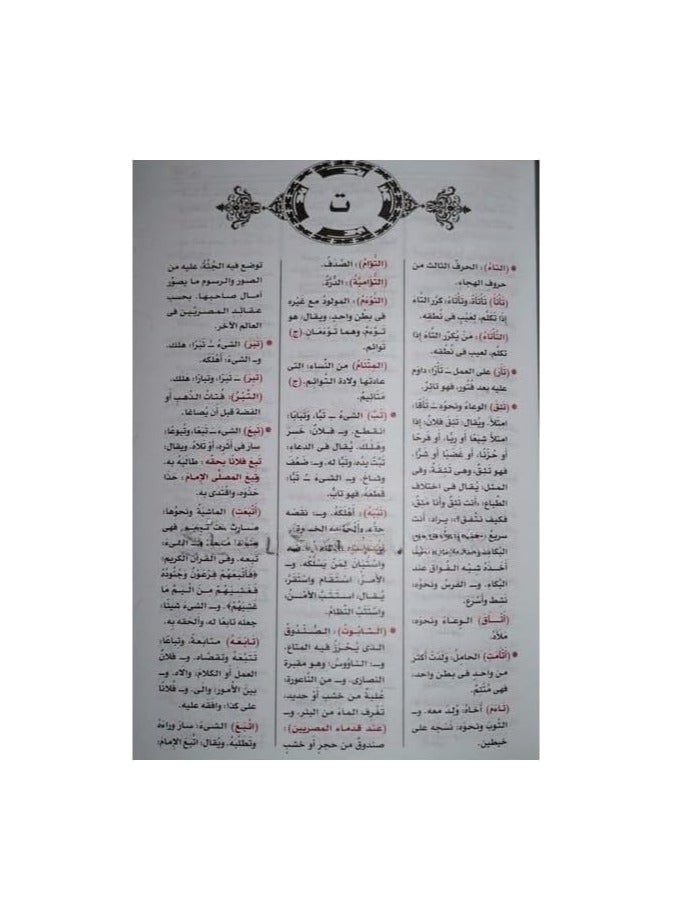 ت
(التاء) : الحرف الثالث من
حروف الهجاء.
(تأتأ) تأتأة، وتأتاء: كرّر التاء
إذا تكلم، لعيب فى نُطقِه.
(التأتاء) : مَن يُكرّر التاء إذا
تكلم، لعيب فى نطقه.
(تأر) على العمل ـ تأرًا: داوم
عليه بعد فُتور، فهو تائرٌ.
(تئق) الوعاءُ ونحوُه ـ تأقًا:
امتلأ. ويقال: تئق فلان: إذا
امتلأ شِبعًا أو ريًّا، أو فرحًا
أو حُزنًا، أو غضبًا أو شرًّا.
فهو تئق، وهى تئقة. وفى
المثل: يُقال فى اختلاف
الطباع: أنت تئق وأنا مئق؛
فكيف نتّفق؟!: يراد: أنت
سريع
البكاء. وـ
أخذه شبه الفُواق عند
البكاء. وـ الفرس ونحوه:
نشط وأسرَع.
(أتــأق) الـوعـاءَ ونحوَه:
ملأه.
(أتأمت) الحاملُ: ولدت أكثر
من واحد فى بطن واحد،
فهى مُتئمٌ.
(تاءم) أخاه: وُلِد معه. وـ
الثوبَ ونحوَه: نسجه على
خيطين.
(التُّؤام) : الصَّدَف.
(التُّؤامية) : الدُّرَّةُ.
(التّوْءَمُ) : المولودُ مع غيره
فى بطن واحد. ويقال: هو
تـوْءَمُ، وهما توْءَمـان. (ج)
توائم.
(المِتئام) من النساء: التى
عادتها ولادة التوائم. (ج)
متائيم.
(تبّ) الشىءُ ـ تبًّا، وتبابًا:
انقطع. وـ فـلانٌ: خسر
وهلك. يُقال فى الدعاء:
تبّت يدُه، وتبًّا له. وـ: ضعُف
وشاخ. وـ الشىءَ ـُ تبًّا:
قطعهُ، فهو تابٌّ.
(تبّبه) : أهلكه. وـ: نقصه
حقّه،
واستبان لمن يسلُكه. وـ
الأمرُ: استقام واستقرّ،
يُقال: استتبّ الأمْنُ،
واستتبّ النّظام.
(التابوت) : الصندوق
الذى يُحرز فيه المتاع.
وـ: الناووس: وهو مقبرة
النصارى. وـ من الناعورة:
عُلبة من خشب أو حديد،
تغرف الماء من البئر. وـ
(عند قدماء المصريين) :
صندوق من حجر أو خشب
توضع فيه الجُثّة، عليه من
الصور والرسوم ما يصوّر
آمال صاحبها، بحسب
عقائد المصريين فى
العالم الآخر.
(تبر) الشىءُ ـ تبرًا: هلك.
وـ الشىءَ: أهلكه.
(تبر) ـ تبرًا، وتبارًا: هلك.
(التِّبرُ) : فُتات الذهب أو
الفضة قبل أن يُصاغا.
(تبع) الشىءَ ـ تبعًا، وتُبوعًا:
سار فى أثره، أو تلاه. ويقال:
تبع فلانًا بحقه: طالبه به.
وتبع المصلّى الإمام: حذا
حذوه، واقتدى به.
(أتبعت) الماشيةُ ونحوُها:
صارت
الشىءَ:
يتبعه، وفى القرآن الكريم:
﴿فأتبعهم فرعون وجنوده
فغشيهم من اليم ما
غشيهم﴾. وـ الشىءَ شيئًا:
جعله تابعًا له، وألحقه به.
(تابعه) متابعة، وتباعًا:
تتبّعه وتقصّاه. وـ فلانٌ
العمل أو الكلام: والاه. وـ
بين الأمور: والى. وـ فلانًا
على كذا: وافقه عليه.
(اتّبع) الشىءَ: سار وراءهُ
وتطلّبهُ. ويُقال: اتّبع الإمام: